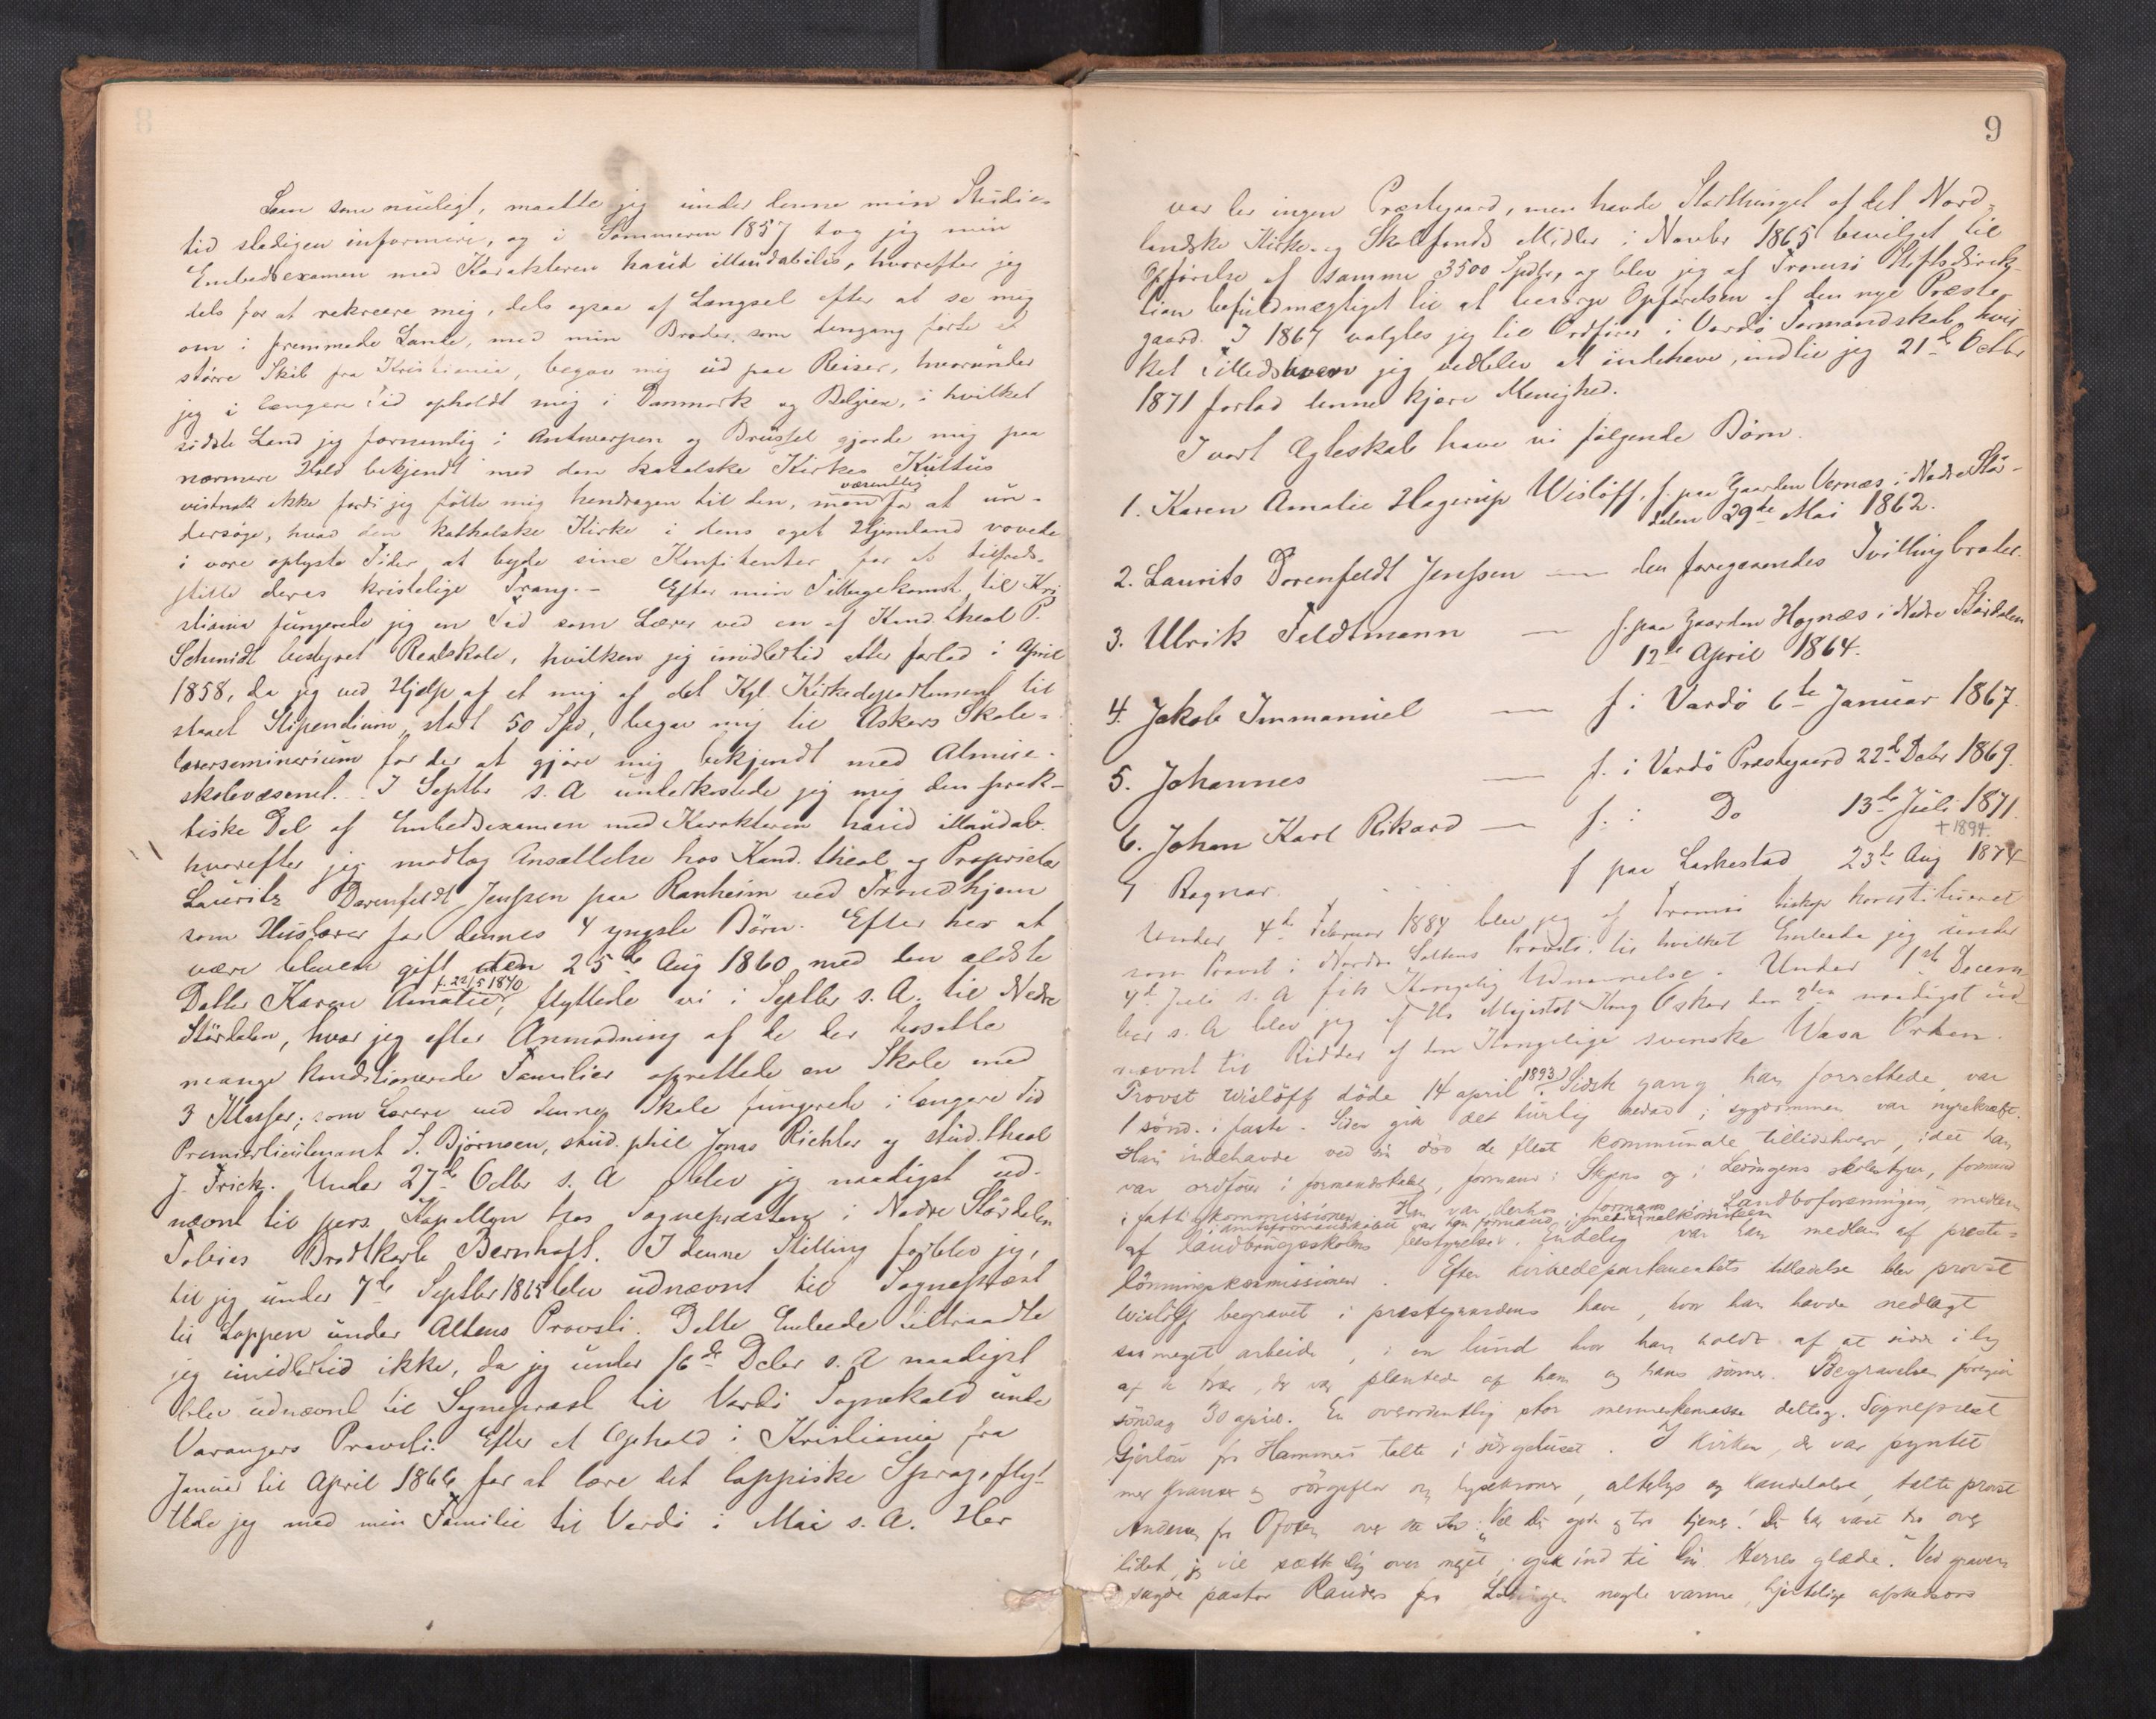 8
Som som muligt, maatte jeg under denne min Studie-
tid stadigen informere, og i Sommeren 1857 tog jeg min
Embedsexamen med Karakteren haud illaudabilis, hvorefter jeg
dels for at rekreere mig, dels ogsaa af Længsel efter at se mig
om i fremmede Lande, med min Broder, som dengang førte et
større Skib fra Kristiania, begav mig ud paa Reiser, hvorunder
jeg i længere Tid opholdt mig i Danmark og Belgien, i hvilket
sidste Land jeg fornemlig i Antwerpen og Brüssel gjorde mig paa
nærmere Hold bekjendt med den katolske Kirkes Kultus
vistnok ikke fordi jeg følte mig hendragen til den, men væsentlig for at un-
dersøge, hvad den katholske Kirke i dens eget Hjemland vovede
i vore oplyste Tider at byde sine Konfitenter for at tilfreds-
stille deres kristelige Trang. - Efter min Tilbagekomst til Kri
stiania fungerede jeg en Tid som Lærer ved en af Kand. theol P.
Schmidt bestyret Realskole, hvilken jeg imidlertid atter forlod i April
1858, da jeg ved Hjælp af et mig af det Kgl. Kirkedepartement til
staaet Stipendium, stort 50 Spd, begav mig til Askers Skole-
lærerseminarium for der at gjøre mig bekjendt med Almue-
skolevæsenet. I Septbr s. A underkastede jeg mig den prak-
tiske Del af Embedsexamen med Karakteren haud illaudab.
hvorefter jeg modtog Ansættelse hos Kand. theol og Proprietær
Lauritz Dorenfeldt Jenssen paa Ranheim ved Trondhjem
som Huslærer for dennes 4 yngste Børn. Efter her at
være bleven gift den 25de Aug 1860 med den ældste
Datter Karen Amalie, f. 22/5 1840 flyttede vi i Septbr s. A. til Nedre
Stördalen, hvor jeg efter Anmodning af de der bosatte
mange konditionerede Familier oprettede en Skole med
3 Klasser; som Lærere ved denne Skole fungerede i længere Tid
Premierlieutenant S. Björnsen, stud. phil Jonas Richter og stud. theol
J. Frich. Under 27de Octbr s. A blev jeg naadigst ud-
nævnt til pers. Kapellan hos Sognepræsten i Nedre Stördalen
Tobias Brodtkorb Bernhoft. I denne Stilling forblev jeg,
til jeg under 7de Septbr 1865 blev udnævnt til Sognepræst
til Loppen under Altens Provsti. Dette Embede tiltraadte
jeg imidlertid ikke, da jeg under 16de Decbr s. A naadigst
blev udnævnt til Sognepræst til Vardö Sognekald under
Varangers Provsti. Efter et Ophold i Kristiania fra
Januar til April 1866 for at lære det lappiske Sprog, flyt-
tede jeg med min Familie til Vardö i Mai s. A. Her
9
var der ingen Præstegaard, men havde Storthinget af det Nord-
landske Kirke- og Skolefonds Midler i Novbr 1865 bevilget til
Opførelse af samme 3500 Spdlr, og blev jeg af Tromsö Stiftsdirek-
tion befuldmægtiget til at besørge Opførelsen af den nye Præste-
gaard. I 1867 valgtes jeg til Ordfører i Vardö Formandskab, hvil
ket Tillidshverv jeg vedblev at indehave, indtil jeg 21de Octbr
1871 forlod denne kjære Menighed.
I vort Ægteskab have vi følgende Børn.
1. Karen Amalie Hagerup Wislöff, f. paa Gaarden Vernæs i Nedre Stör-
dalen 29de Mai 1862.
2. Laurits Dorenfeldt Jenssen — den foregaaendes Tvillingbroder.
3. Ulrik Feldtmann — f. paa Gaarden Hognæs i Nedre Stördalen
12te April 1864.
4. Jakob Immanuel — f i Vardö 6te Januar 1867.
5. Johannes — f. i Vardö Præstegaard 22de Decbr 1869.
6. Johan Karl Rikard — f. i Do 13de Juli 1871.
+ 1894.
7 Ragnar f paa Laskestad 23de Aug 1874
Under 4de Februar 1884 blev jeg af Tromsö Biskop konstitueret
som Provst i Nordre Saltens Provsti, til hvilket Embede jeg under
4de Juli s. A fik Kongelig Udnævnelse. Under 1ste Decem
ber s. A blev jeg af Hs Majestæt Kong Oskar den 2den naadigst ud-
nævnt til Ridder af den Kongelige svenske Wasa Orden.
Provst Wislöff döde 14 april 1893. Sidste gang han forrettede var
1 sönd. i faste. Siden gik det türlig nedad; sygdommen var nyrekræft.
Han indehavde ved sin död de fleste kommunale tillidshverv, idet han
var ordfører i formandskabet, formand i Steigens og i Lødingens skolestyre, formand
i fattigkommissionen. Han var derhos formand i Landboforeningen, medlem
i amtsformandskabet var han formand i
af landbrugsskolens bestyrelse. Endelig var han medlem af preste-
lönningskommissionen. Efter kirkedepartementets tilladelse blev provst
Wislöff begravet i præstegaardens have, hvor han havde nedlagt
saa meget arbeide, i en lund hvor han holdt af at sidde i ly
af de trær, der var plantede af ham og hans sönner. Begravelsen foregik
söndag 30 april. En overordentlig stor menneskemasse deltog. Sogneprest
Gjerlöw fra Hammerö talte i sörgehuset. I kirken, der var pyntet
med kranse og sörgeflor og lysekroner, alterlys og kandelabre, talte provst
Andersen fra Ofoten over de ord: "Vel du gode og tro tjener! Du har været tro over
lidet, jeg vil sætte dig over meget; gak ind til din Herres glæde." Ved graven
sagde pastor Randers fra Lødingen nogle varme, hjertelige afskedsord